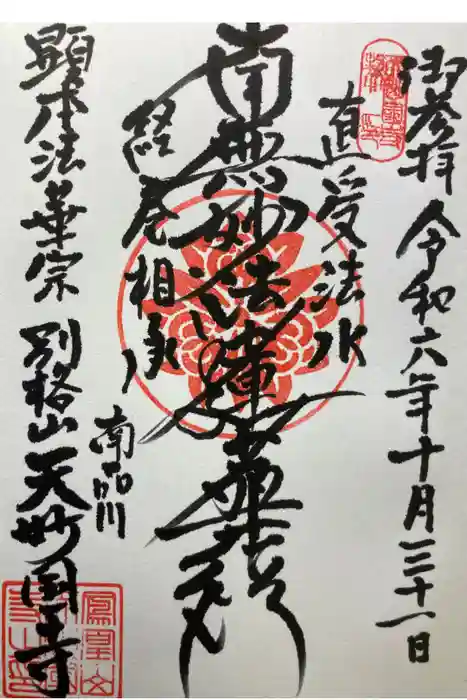 御参拝
令和六年十月三十一日
直受法水
南無妙法蓮華経
経巻相承
南品川
顕本法華宗 別格山 天妙国寺
鳳凰山